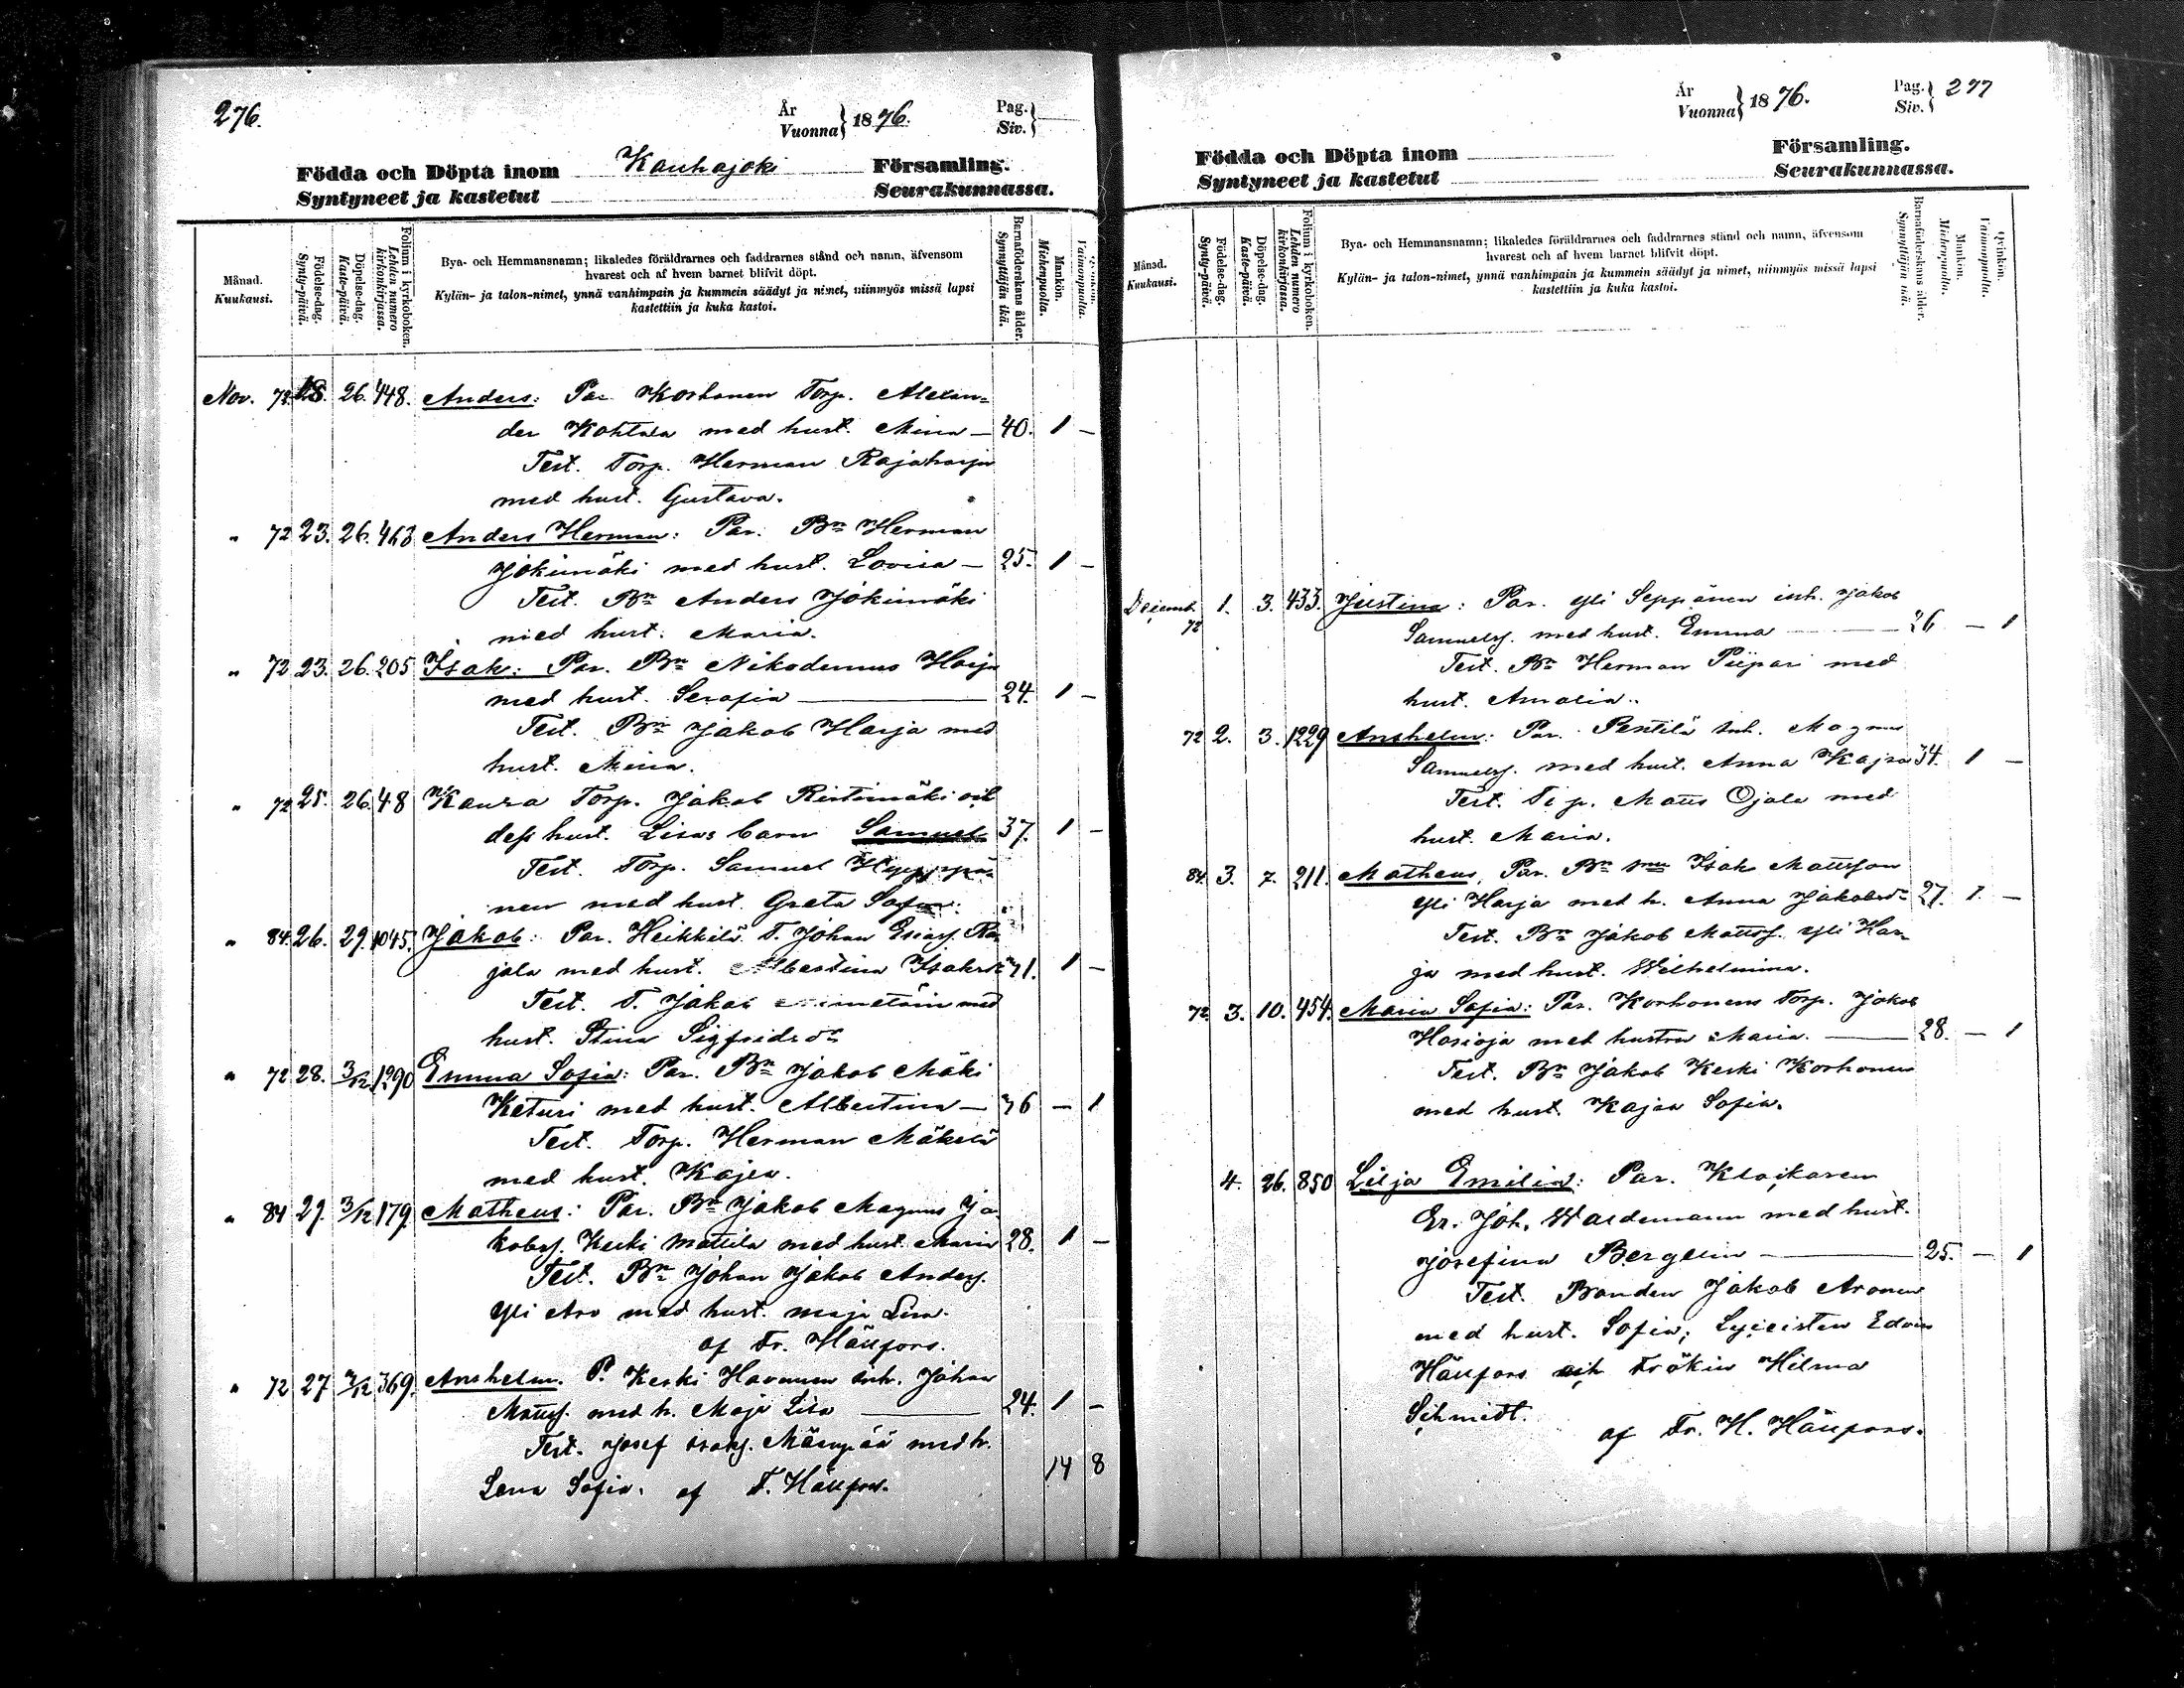 276.
År
Vuonna } 1876.
Pag.
Siv. }
Födda och Döpta inom Kauhajoki Församling.
Syntyneet ja kastetut Seurakunnassa.
Månad.
Kuukausi.
Födelse-dag.
Synty-päivä.
Döpelse-dag.
Kaste-päivä.
Folium i kyrkoboken.
Lehden numero kirkonkirjassa.
Bya- och Hemmansnamn; likaledes föräldrarnes och faddrarnes stånd och namn, äfvensom
hvarest och af hvem barnet blifvit döpt.
Kylän- ja talon-nimet, ynnä vanhimpain ja kummein säädyt ja nimet, niinmyös missä lapsi
kastettiin ja kuka kastoi.
Barnaföderskans ålder.
Synnyttäjän ikä.
Mankön.
Miehenpuolia.
Vaimonpuolia.
Nov. 72 18. 26. 448. Anders: Par Korhonen Torp. Alexan=
der Kohtala med hust. Mina — 40. 1 –
Test. Torp. Herman Rajaharju
med hust. Gustava.
" 72 23. 26. 463 Anders Herman: Par. Bn Herman
Jokimäki med hust. Lovisa — 25. 1 –
Test. Bn Anders Jokimäki
med hust. Maria.
" 72 23. 26. 205 Isak: Par. Bn Nikodemus Harja
med hust. Serafia — 24. 1 –
Test. Bn Jakob Harja med
hust. Mina.
" 72 25. 26. 48 Kaura Torp. Jakob Ristimäki och
dess hust. Lisas barn Samuel 37. 1 –
Test. Torp. Samuel Hyppä-
nen med hust. Greta Sofia.
" 84. 26. 29. 1045. Jakob: Par. Heikkilä T. Johan Esiass. Ra-
jala med hust. Albertina Isaksdr 41. 1 –
Test. T. Jakob med
hust. Stina Sigfridsdr
" 72 28. 3/12 1290 Emma Sofia: Par. Bn Jakob Mäki
Keturi med hust. Albertina — 36 – 1
Test. Torp. Herman Mäkelä
med hust. Kajsa.
" 84 29. 3/12 179. Matheus: Par. Bn Jakob Magnus Ja-
kobss. Keski Mattila med hust. Maria 28. 1 –
Test. Bn Johan Jakob Anderss.
Yli Aro med hust. Maja Lisa.
af Fr. Hällfors.
" 72 27 3/12 369. Anshelm. P. Keski Havunen inh. Johan
Mattss. med h. Maja Lisa — 24. 1 –
Test. Josef Isaks. Mäenpää med h.
Lena Sofia. af F. Hällfors.
14 8
År
Vuonna } 1876.
Pag.
Siv. } 277
Födda och Döpta inom Församling.
Syntyneet ja kastetut Seurakunnassa.
Månad.
Kuukausi.
Födelse-dag.
Synty-päivä.
Döpelse-dag.
Kaste-päivä.
Folium i kyrkoboken.
Lehden numero kirkonkirjassa.
Bya- och Hemmansnamn; likaledes föräldrarnes och faddrarnes stånd och namn, äfvensom
hvarest och af hvem barnet blifvit döpt.
Kylän- ja talon-nimet, ynnä vanhimpain ja kummein säädyt ja nimet, niinmyös missä lapsi
kastettiin ja kuka kastoi.
Barnaföderskans ålder.
Synnyttäjän ikä.
Mankön.
Miehenpuolia.
Qvinkön.
Vaimonpuolia.
Decemb. 72 1. 3. 433. Justina: Par. Yli Seppänen inh. Jakob
Samuelss. med hust. Emma — 26 – 1
Test. Bn Herman Piipari med
hust. Amalia.
72 2. 3. 1229 Anshelm: Par. Pentilä inh. Magnus
Samuelss. med hust. Anna Kajsa 34. 1 –
Test. Matts Ojala med
hust. Maria.
84. 3. 7. 211. Matheus, Par. Bn Isak Mattsson
Yli Harja med h. Anna Jakobsdr 27. 1. –
Test. Bn Jakob Mattss. Yli Har-
ja med hust. Wilhelmina.
72. 3. 10. 454. Maria Sofia: Par. Korhonens Torp. Jakob
Harioja med hustru Maria. — 28. – 1
Test. Bn Jakob Keski Korhonen
med hust. Kajsa Sofia.
4. 26. 850 Lilja Emilia: Par. Klockaren
Er. Joh. Waldemann med hust.
Josefina Bergelin — 25. – 1
Test. Bonden Jakob Aronen
med hust. Sofia; Lyceisten Edvin
Hällfors och Fröken Hilma
Schmidt.
af Fr. H. Hällfors.